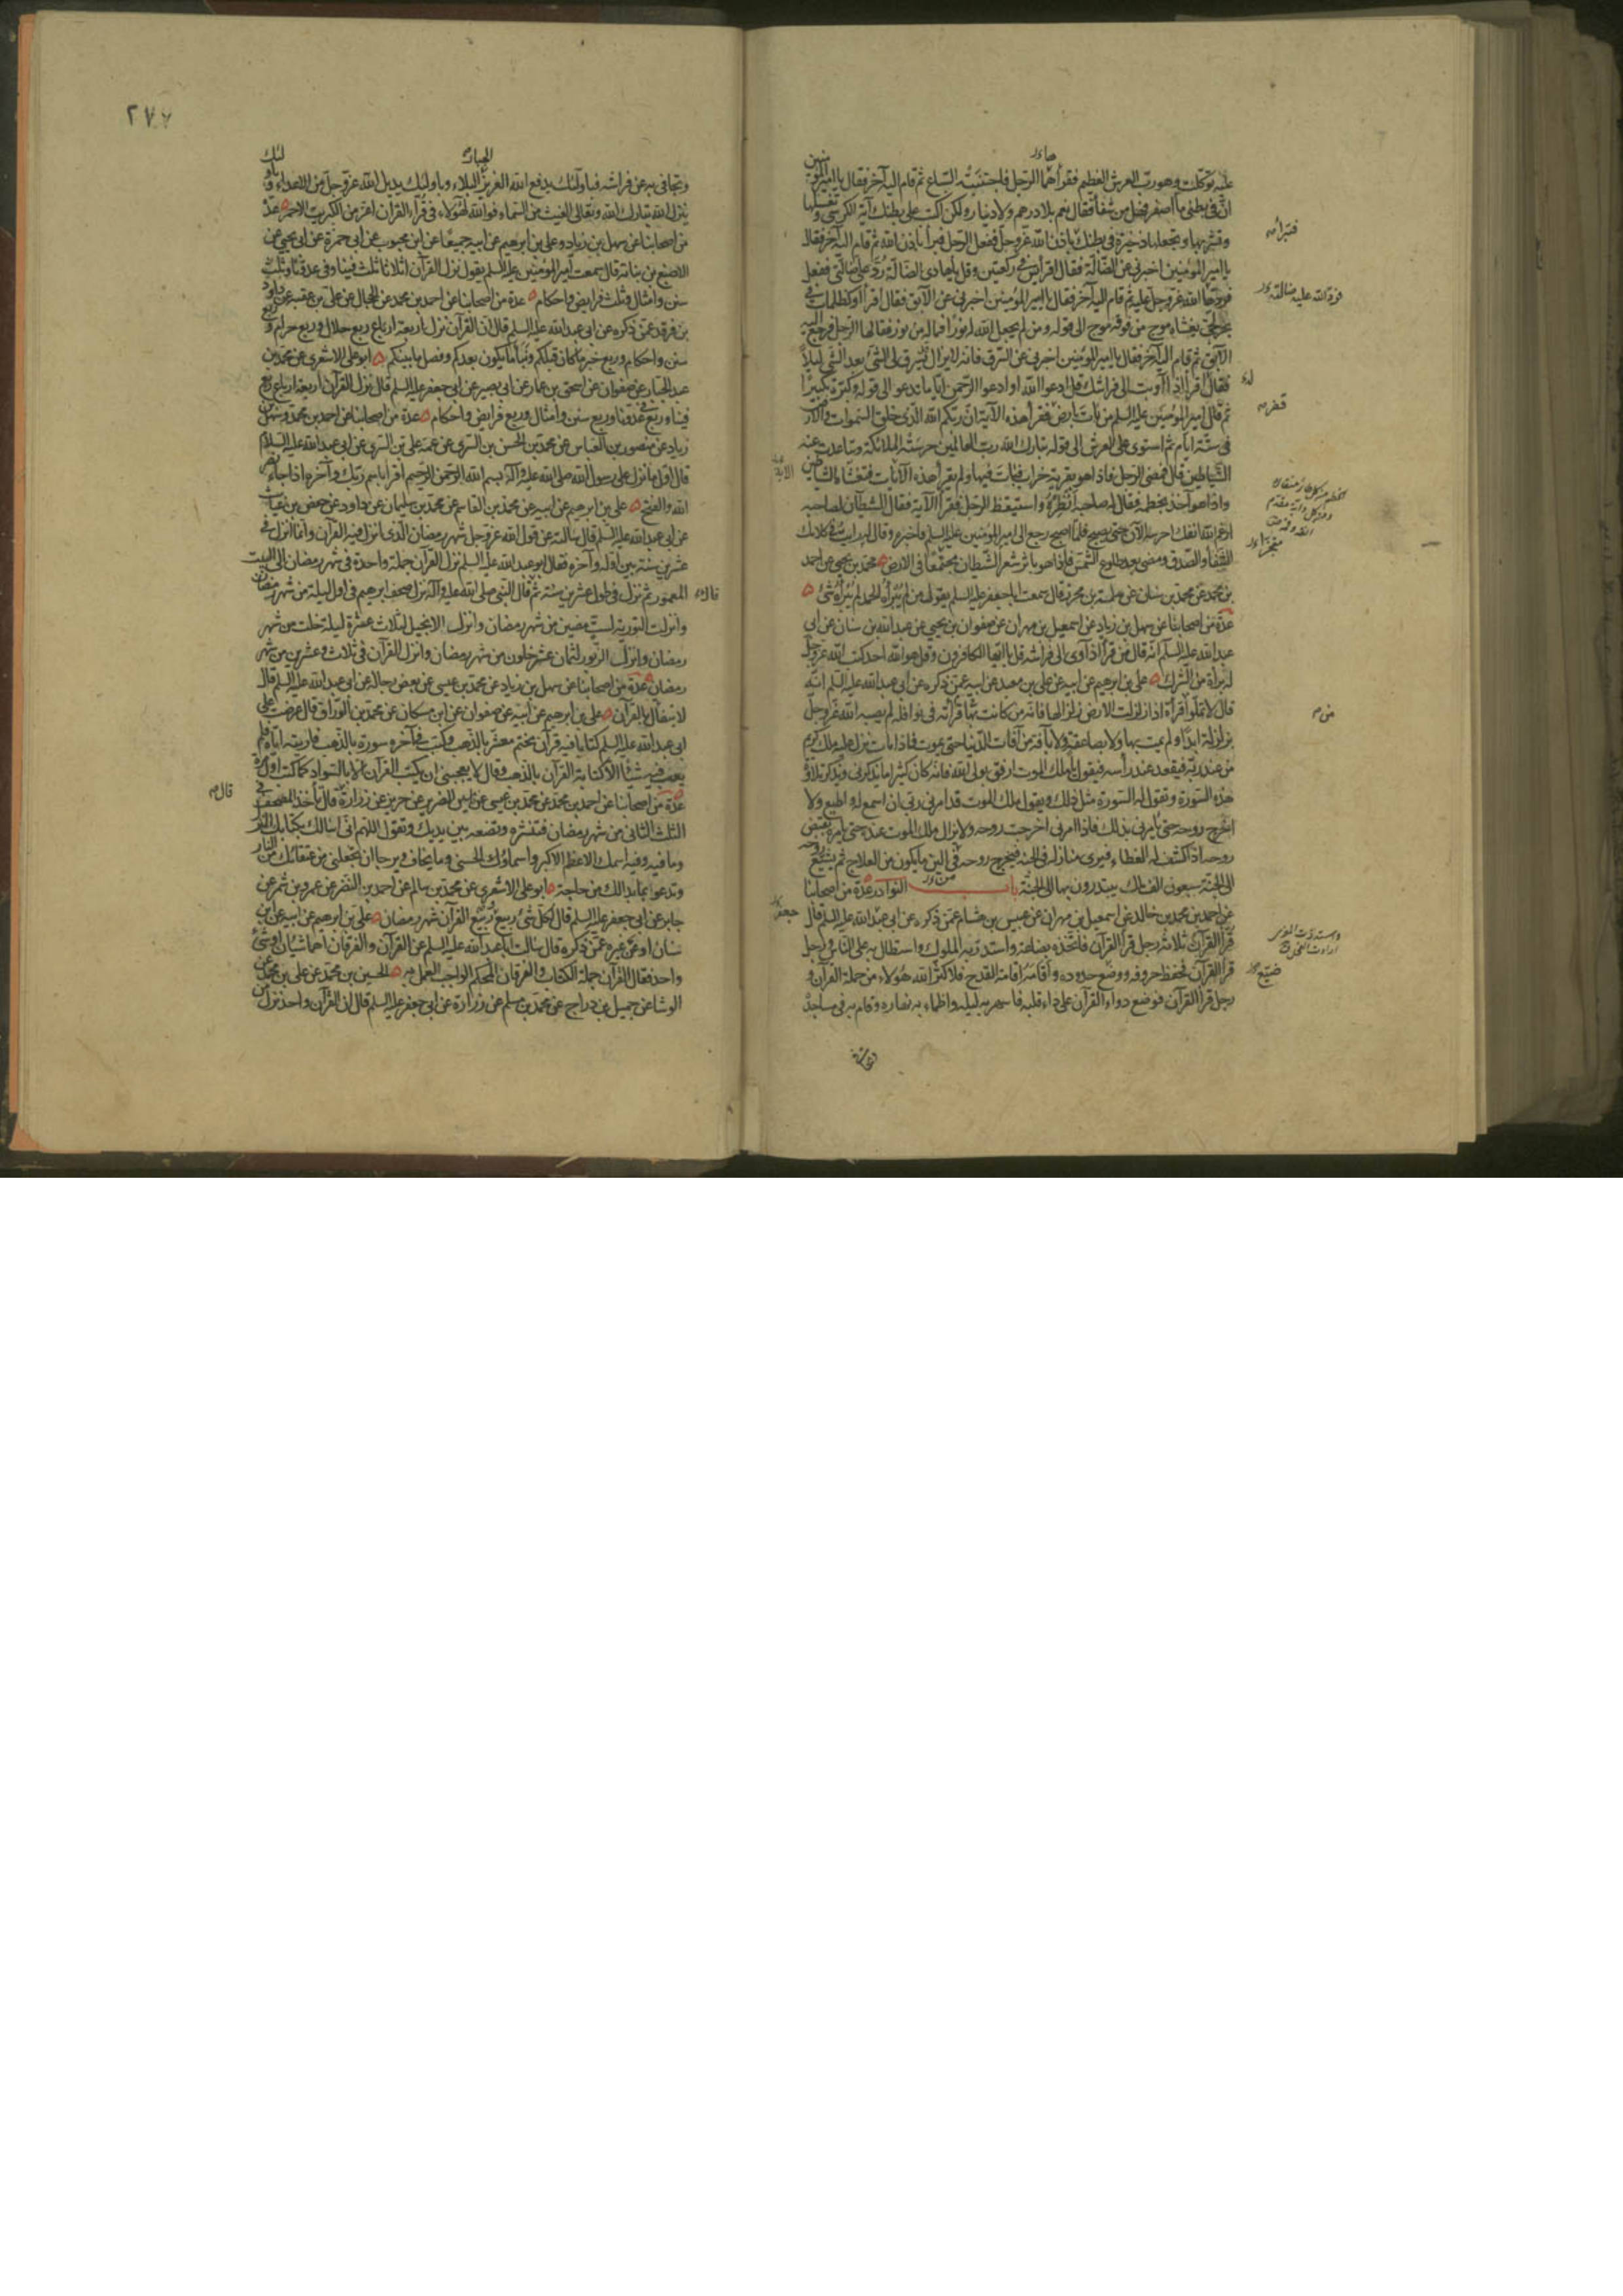 عليه توكلت وهو رب العرش العظيم فقرأهما الرجل فاجتنبته السباع ثم قام اليه آخر فقال يا امير المؤمنين
ان في بطني ماء اصفر فهل من شفاء فقال نعم بلا درهم ولا دينار ولكن اكتب على بطنك آية الكرسي وتغسلها
وتشربها وتجعلها ذخيرة في بطنك باذن الله عز وجل ففعل الرجل فبرأ باذن الله ثم قام اليه آخر فقال
يا امير المؤمنين اخبرني عن الضالة فقال اقرأ يس في ركعتين وقل يا هادي الضالة رد علي ضالتي ففعل
فردها الله عز وجل عليه ثم قام اليه آخر فقال يا امير المؤمنين اخبرني عن الآبق فقال اقرأ او كظلمات في
بحر لجي يغشاه موج من فوقه موج الى قوله ومن لم يجعل الله له نورا فما له من نور فقالها الرجل فرجع اليه
الآبق ثم قام اليه آخر فقال يا امير المؤمنين اخبرني عن السرق فانه لا يزال يسرق لي الشئ بعد الشئ ليلا
فقال اقرأ اذا آويت الى فراشك قل ادعوا الله او ادعوا الرحمن ايا ما تدعوا الى قوله وكبره تكبيرا
ثم قال امير المؤمنين عليه السلم من بات بارض قفر فقرأ هذه الآية ان ربكم الله الذي خلق السموات والارض
في ستة ايام ثم استوى على العرش الى قوله تبارك الله رب العالمين حرسته الملائكة وتباعدت عنه
الشياطين قال فمضى الرجل فاذا هو بقرية خراب فبات فيها ولم يقرأ هذه الآيات فتغشاه الشياطين
واذا هو آخذ بخطمه فقال له صاحبه انظره واستيقظ الرجل فقرأ الآية فقال الشيطان لصاحبه
ارغم الله انفك احرسه الآن حتى يصبح فلما اصبح رجع الى امير المؤمنين عليه السلم فاخبره وقال له رايت في كلامك
الشفاء والصدق ومضى بعد طلوع الشمس فاذا هو باثر شعر الشيطان مجتمعا في الارض محمد بن يحيى عن احمد
بن محمد عن محمد بن سنان عن سلمة بن محرز قال سمعت ابا جعفر عليه السلم يقول من لم يبرأه الحمد لم يبرأه شئ
عدة من اصحابنا عن سهل بن زياد عن اسمعيل بن مهران عن صفوان بن يحيى عن عبد الله بن سنان عن ابي
عبد الله عليه السلم انه قال من قرأ اذا آوى الى فراشه قل يا ايها الكافرون وقل هو الله احد كتب الله عز وجل
له براة من الشرك علي بن ابرهيم عن ابيه عن علي بن معبد عن ابيه عمن ذكره عن ابي عبد الله عليه السلم انه
قال لا تملوا قرأة اذا زلزلت الارض زلزالها فانه من كانت قرأته في نوافله لم يصبه الله عز وجل
بزلزلة ابدا ولم يمت بها ولا بصاعقة ولا بآفة من آفات الدنيا حتى يموت فاذا مات نزل عليه ملك كريم
من عند ربه فيقعد عند رأسه فيقول يا ملك الموت ارفق بولي الله فانه كان كثيرا ما يذكرني ويذكر تلاوة
هذه السورة وتقول له السورة مثل ذلك ويقول ملك الموت قد امرني ربي ان اسمع له واطيع ولا
اخرج روحه حتى يأمرني بذلك فاذا امرني اخرجت روحه ولا يزال ملك الموت عنده حتى يأمره بقبض
روحه اذا كشف له الغطاء فيرى منازله في الجنة فيخرج روحه في الين ما يكون من العلاج ثم يشيع روحه
الى الجنة سبعون الف ملك يبتدرون بها الى الجنة باب النوادر عدة من اصحابنا
عن احمد بن محمد بن خالد عن اسمعيل بن مهران عن عبيس بن هشام عمن ذكره عن ابي عبد الله عليه السلم قال
قرأ القرآن ثلاثة رجل قرأ القرآن فاتخذه بضاعة واستدر به الملوك واستطال به على الناس ورجل
قرأ القرآن فحفظ حروفه ووضع حدوده واقامه اقامة القدح فلا كثر الله هؤلاء من حملة القرآن و
رجل قرأ القرآن فوضع دواء القرآن على داء قلبه فاسهر به ليله واظماء به نهاره وقام به في مساجده
فبرأ
فرد الله عليه ضالته
قفر
من
ضيع
جعفر
٢٧٧
وتجافى به عن فراشه فباولئك يدفع الله العزيز الجبار البلاء وباولئك يديل الله عز وجل من الاعداء وباولئك
ينزل الله تبارك الله وتعالى الغيث من السماء فوالله لهؤلاء في قراء القرآن اعز من الكبريت الاحمر عدة
من اصحابنا عن سهل بن زياد وعلي بن ابرهيم عن ابيه جميعا عن ابن محبوب عن ابي حمزة عن ابي يحيى عن
الاصبغ بن نباتة قال سمعت امير المؤمنين عليه السلم يقول نزل القرآن اثلاثا ثلث فينا وفي عدونا وثلث
سنن وامثال وثلث فرايض واحكام عدة من اصحابنا عن احمد بن محمد عن الحجال عن علي بن عقبة عن داود
بن فرقد عمن ذكره عن ابي عبد الله عليه السلم قال ان القرآن نزل اربعة ارباع ربع حلال وربع حرام وربع
سنن واحكام وربع خبر ما كان قبلكم ونبأ ما يكون بعدكم وفصل ما بينكم ابو علي الاشعري عن محمد بن
عبد الجبار عن صفوان عن اسحق بن عمار عن ابي بصير عن ابي جعفر عليه السلم قال نزل القرآن اربعة ارباع ربع
فينا وربع في عدونا وربع سنن وامثال وربع فرايض واحكام عدة من اصحابنا عن احمد بن محمد وسهل بن
زياد عن منصور بن العباس عن محمد بن الحسن بن السري عن عمه علي بن السري عن ابي عبد الله عليه السلام
قال اول ما نزل على رسول الله صلى الله عليه وآله بسم الله الرحمن الرحيم اقرأ باسم ربك وآخره اذا جاء نصر
الله والفتح علي بن ابرهيم عن ابيه عن محمد بن القاسم عن محمد بن سليمان عن داود عن حفص بن غياث
عن ابي عبد الله عليه السلم قال سالته عن قول الله عز وجل شهر رمضان الذي انزل فيه القرآن وانما انزل في
عشرين سنة بين اوله وآخره فقال ابو عبد الله عليه السلم نزل القرآن جملة واحدة في شهر رمضان الى البيت
المعمور ثم نزل في طول عشرين سنة ثم قال قال النبي صلى الله عليه وآله نزل صحف ابرهيم في اول ليلة من شهر رمضان
وانزلت التورية لست مضين من شهر رمضان وانزل الانجيل لثلاث عشرة ليلة خلت من شهر
رمضان وانزل الزبور لثمان عشر خلون من شهر رمضان وانزل القرآن في ثلاث وعشرين من شهر
رمضان عدة من اصحابنا عن سهل بن زياد عن محمد بن عيسى عن بعض رجاله عن ابي عبد الله عليه السلم قال
لا يتفأل بالقرآن علي بن ابرهيم عن ابيه عن صفوان عن ابن مسكان عن محمد بن الوراق قال عرضت على
ابي عبد الله عليه السلم كتابا فيه قرآن مختم معشر بالذهب وكتب في آخره سورة بالذهب فاريته اياه فلم
يعب فيه شيئا الا كتابة القرآن بالذهب وقال لا يعجبني ان يكتب القرآن الا بالسواد كما كتب اول مرة
عدة من اصحابنا عن احمد بن محمد عن محمد بن عيسى عن يس الضرير عن حريز عن زرارة قال تأخذ المصحف في
الثلث الثاني من شهر رمضان فتنشره وتضعه بين يديك وتقول اللهم اني اسالك بكتابك المنزل
وما فيه وفيه اسمك الاعظم الاكبر واسماؤك الحسنى وما يخاف ويرجا ان تجعلني من عتقائك من النار
وتدعو بما بدا لك من حاجة ابو علي الاشعري عن محمد بن سالم عن احمد بن النضر عن عمرو بن شمر عن
جابر عن ابي جعفر عليه السلم قال لكل شئ ربيع وربيع القرآن شهر رمضان علي بن ابرهيم عن ابيه عن ابن
سنان او عن غيره عمن ذكره قال سالت ابا عبد الله عليه السلم عن القرآن والفرقان اهما شيئان او شئ
واحد فقال القرآن جملة الكتاب والفرقان المحكم الواجب العمل به الحسين بن محمد عن علي بن محمد عن
الوشا عن جميل بن دراج عن محمد بن مسلم عن زرارة عن ابي جعفر عليه السلم قال ان القرآن واحد نزل من
قال